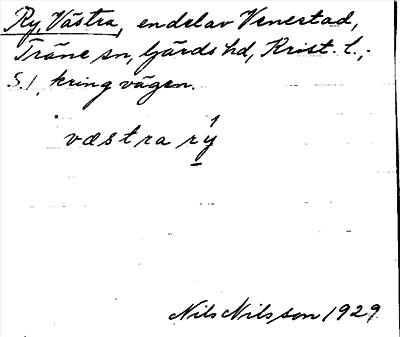 Ry, Västra, en del av Venestad,
Träne sn, Gärds hd, Krist. l.,
S. l, kring vägen.
væstra rý
Nils Nilsson 1929